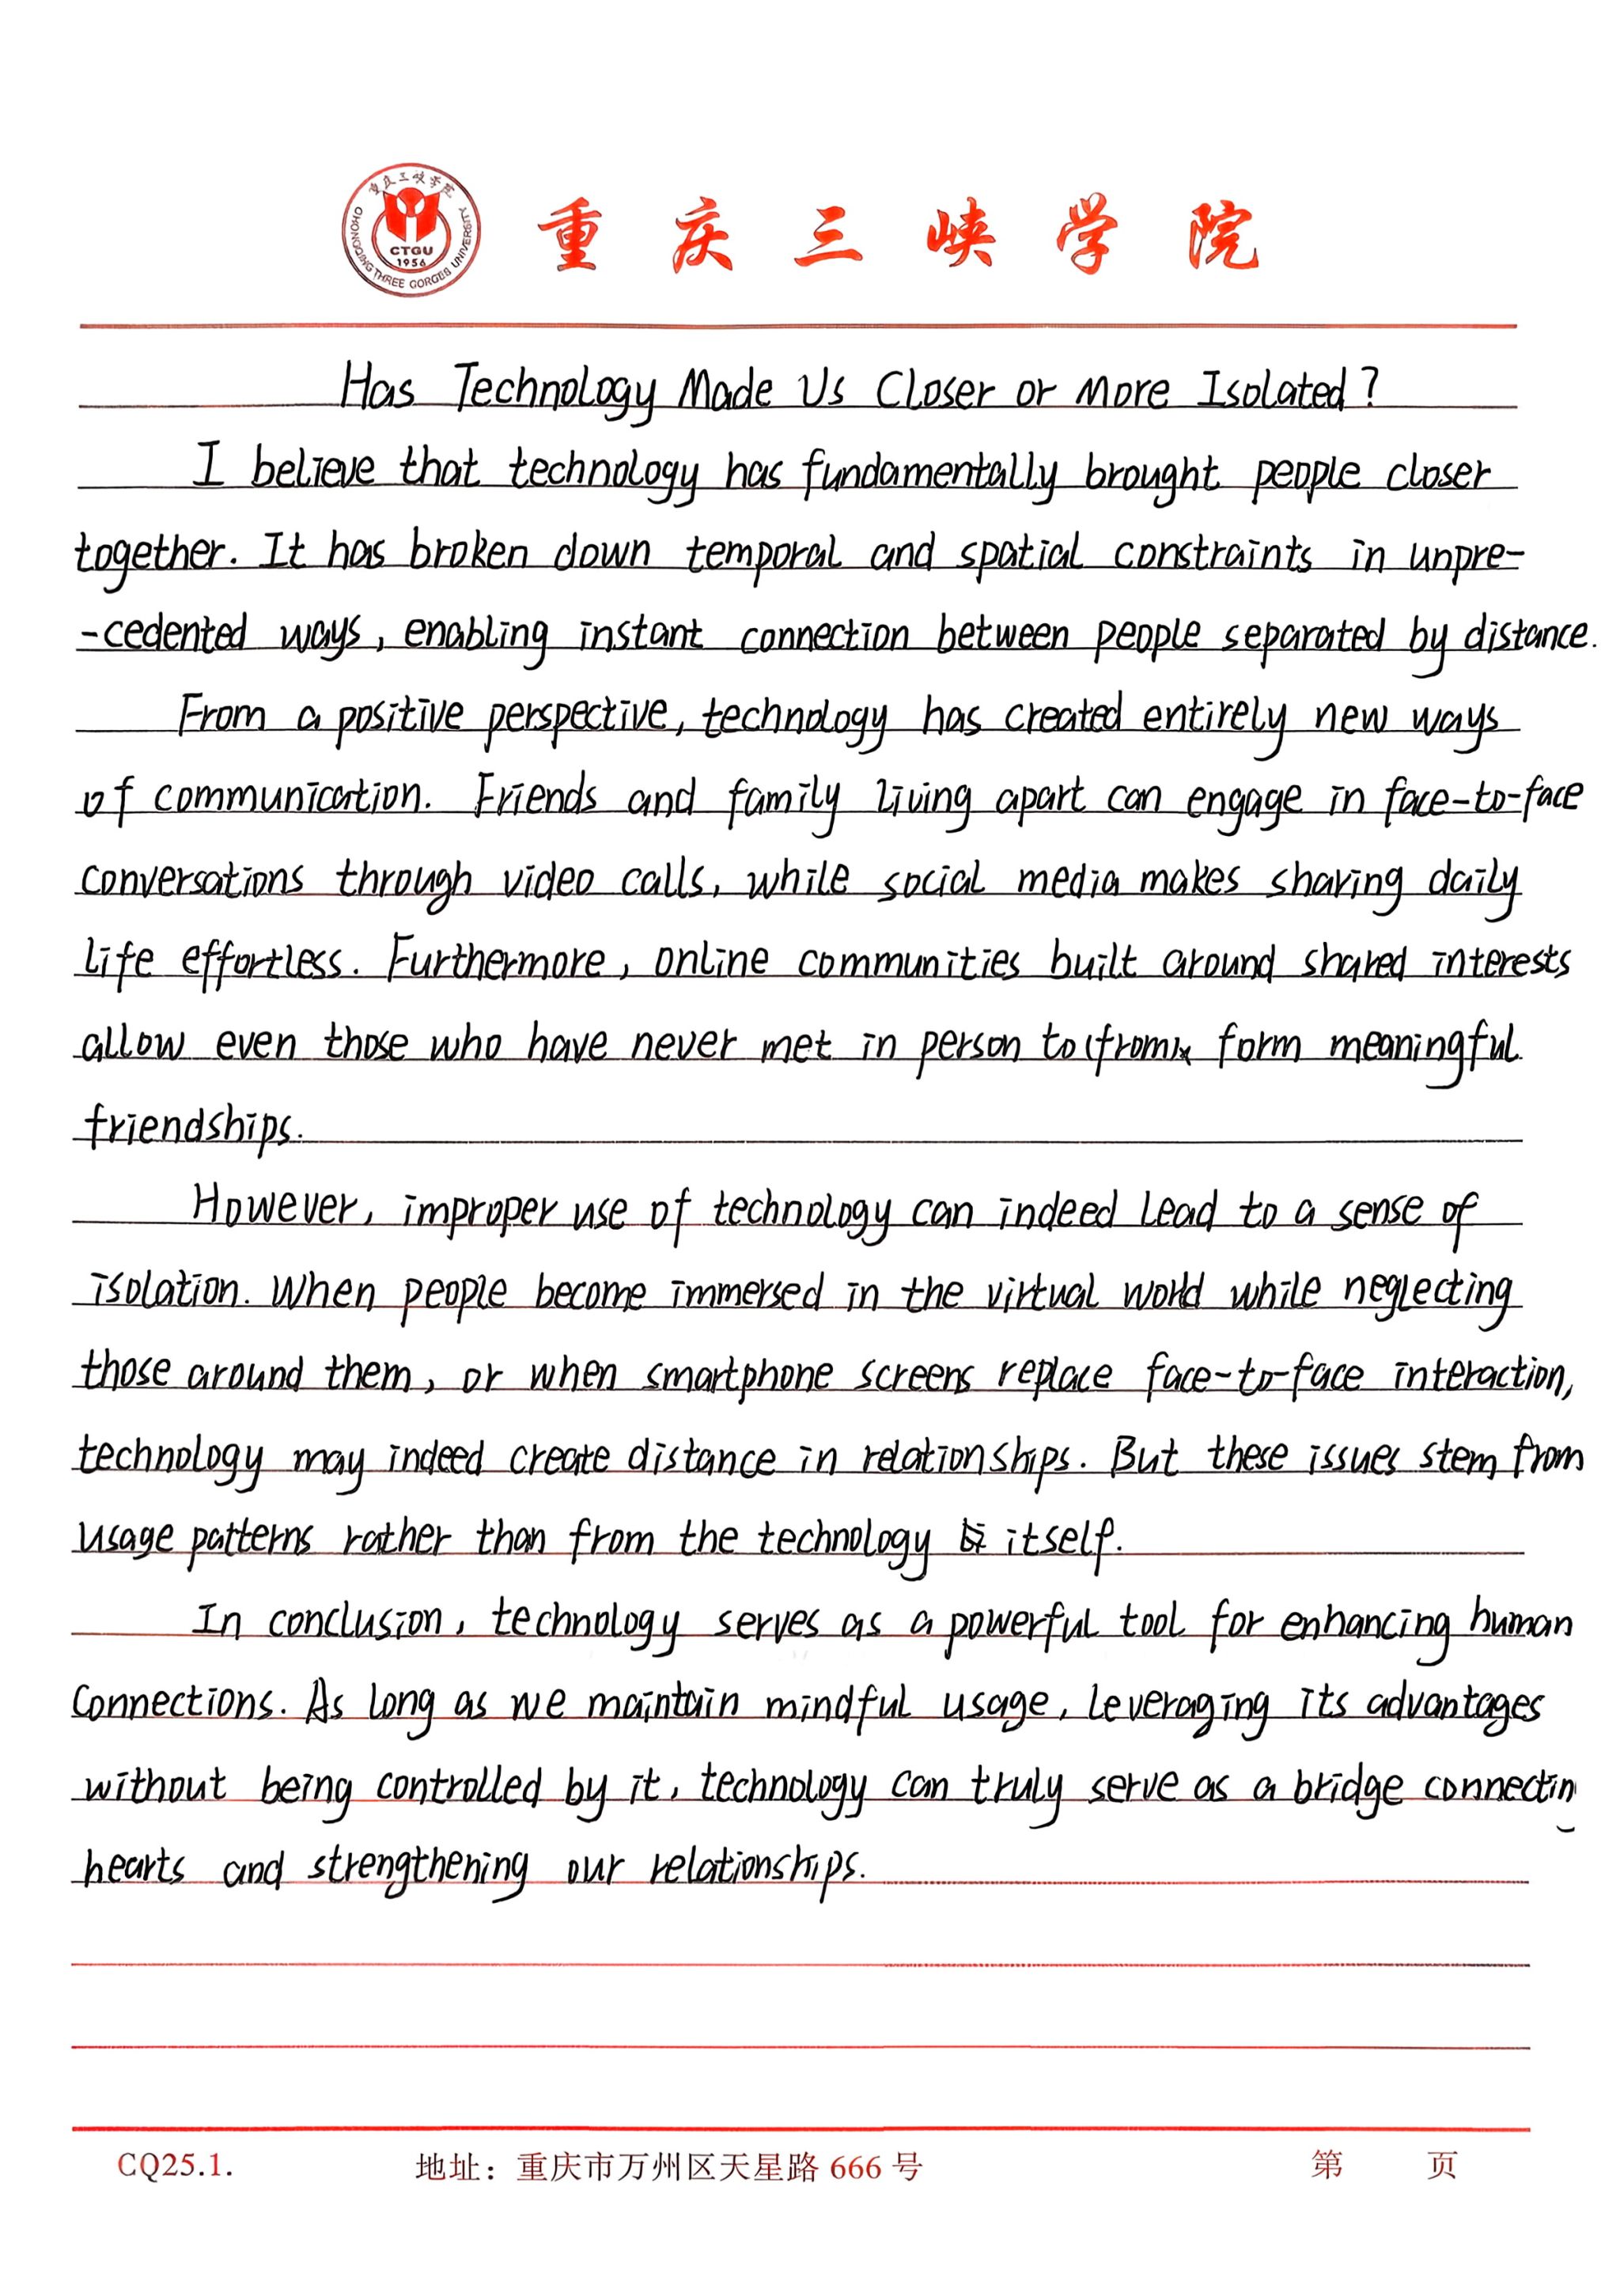 重庆三峡学院
CHONGQING THREE GORGES UNIVERSITY
CTGU
1956
重庆三峡学院
Has Technology Made Us Closer or More Isolated?
I believe that technology has fundamentally brought people closer
together. It has broken down temporal and spatial constraints in unpre-
-cedented ways, enabling instant connection between people separated by distance.
From a positive perspective, technology has created entirely new ways
of communication. Friends and family living apart can engage in face-to-face
conversations through video calls, while social media makes sharing daily
life effortless. Furthermore, online communities built around shared interests
allow even those who have never met in person to (from)x form meaningful
friendships.
However, improper use of technology can indeed lead to a sense of
isolation. When people become immersed in the virtual world while neglecting
those around them, or when smartphone screens replace face-to-face interaction,
technology may indeed create distance in relationships. But these issues stem from
usage patterns rather than from the technology itself.
In conclusion, technology serves as a powerful tool for enhancing human
connections. As long as we maintain mindful usage, leveraging its advantages
without being controlled by it, technology can truly serve as a bridge connectin
hearts and strengthening our relationships.
CQ25.1. 地址：重庆市万州区天星路 666 号 第 页